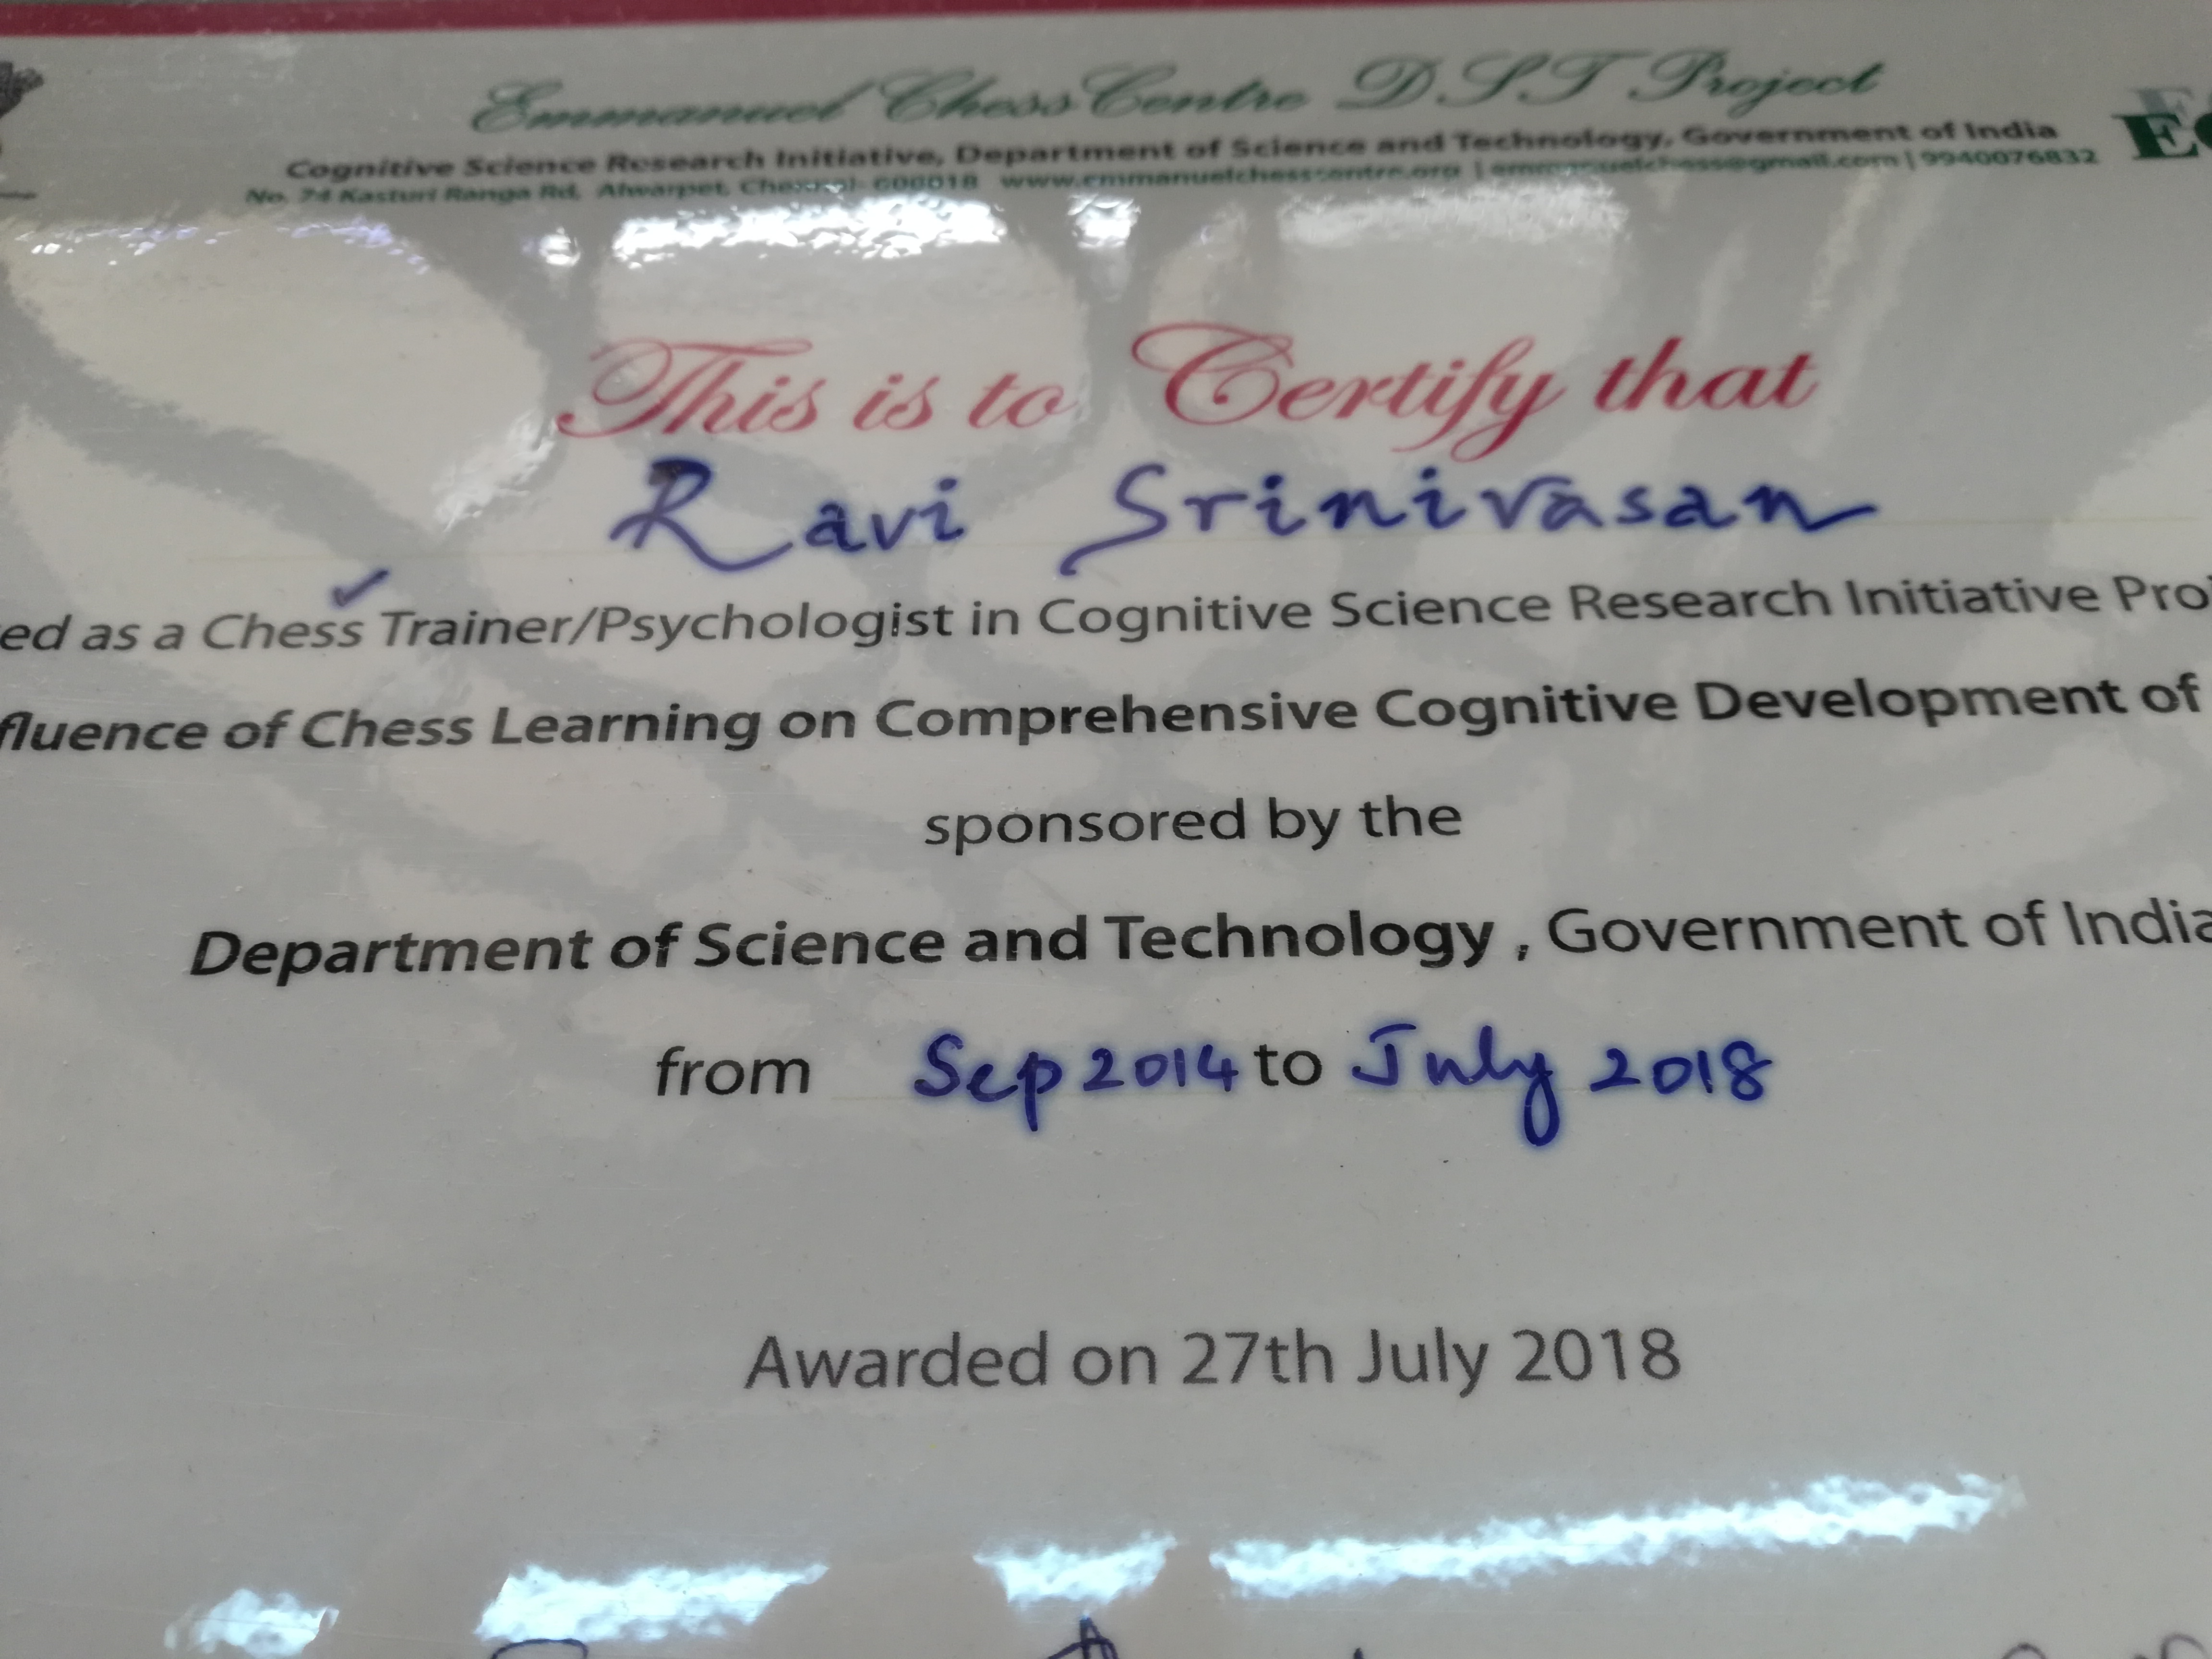 Emmanuel Chess Centre DST Project
Cognitive Science Research Initiative, Department of Science and Technology, Government of India
No. 74 Kasturi Ranga Rd, Alwarpet, Chennai- 600018 www.emmanuelchesscentre.org | emmanuelchess@gmail.com | 9940076832
This is to Certify that
Ravi Srinivasan
ed as a Chess Trainer/Psychologist in Cognitive Science Research Initiative Pro
fluence of Chess Learning on Comprehensive Cognitive Development of
sponsored by the
Department of Science and Technology , Government of India
from Sep 2014 to July 2018
Awarded on 27th July 2018